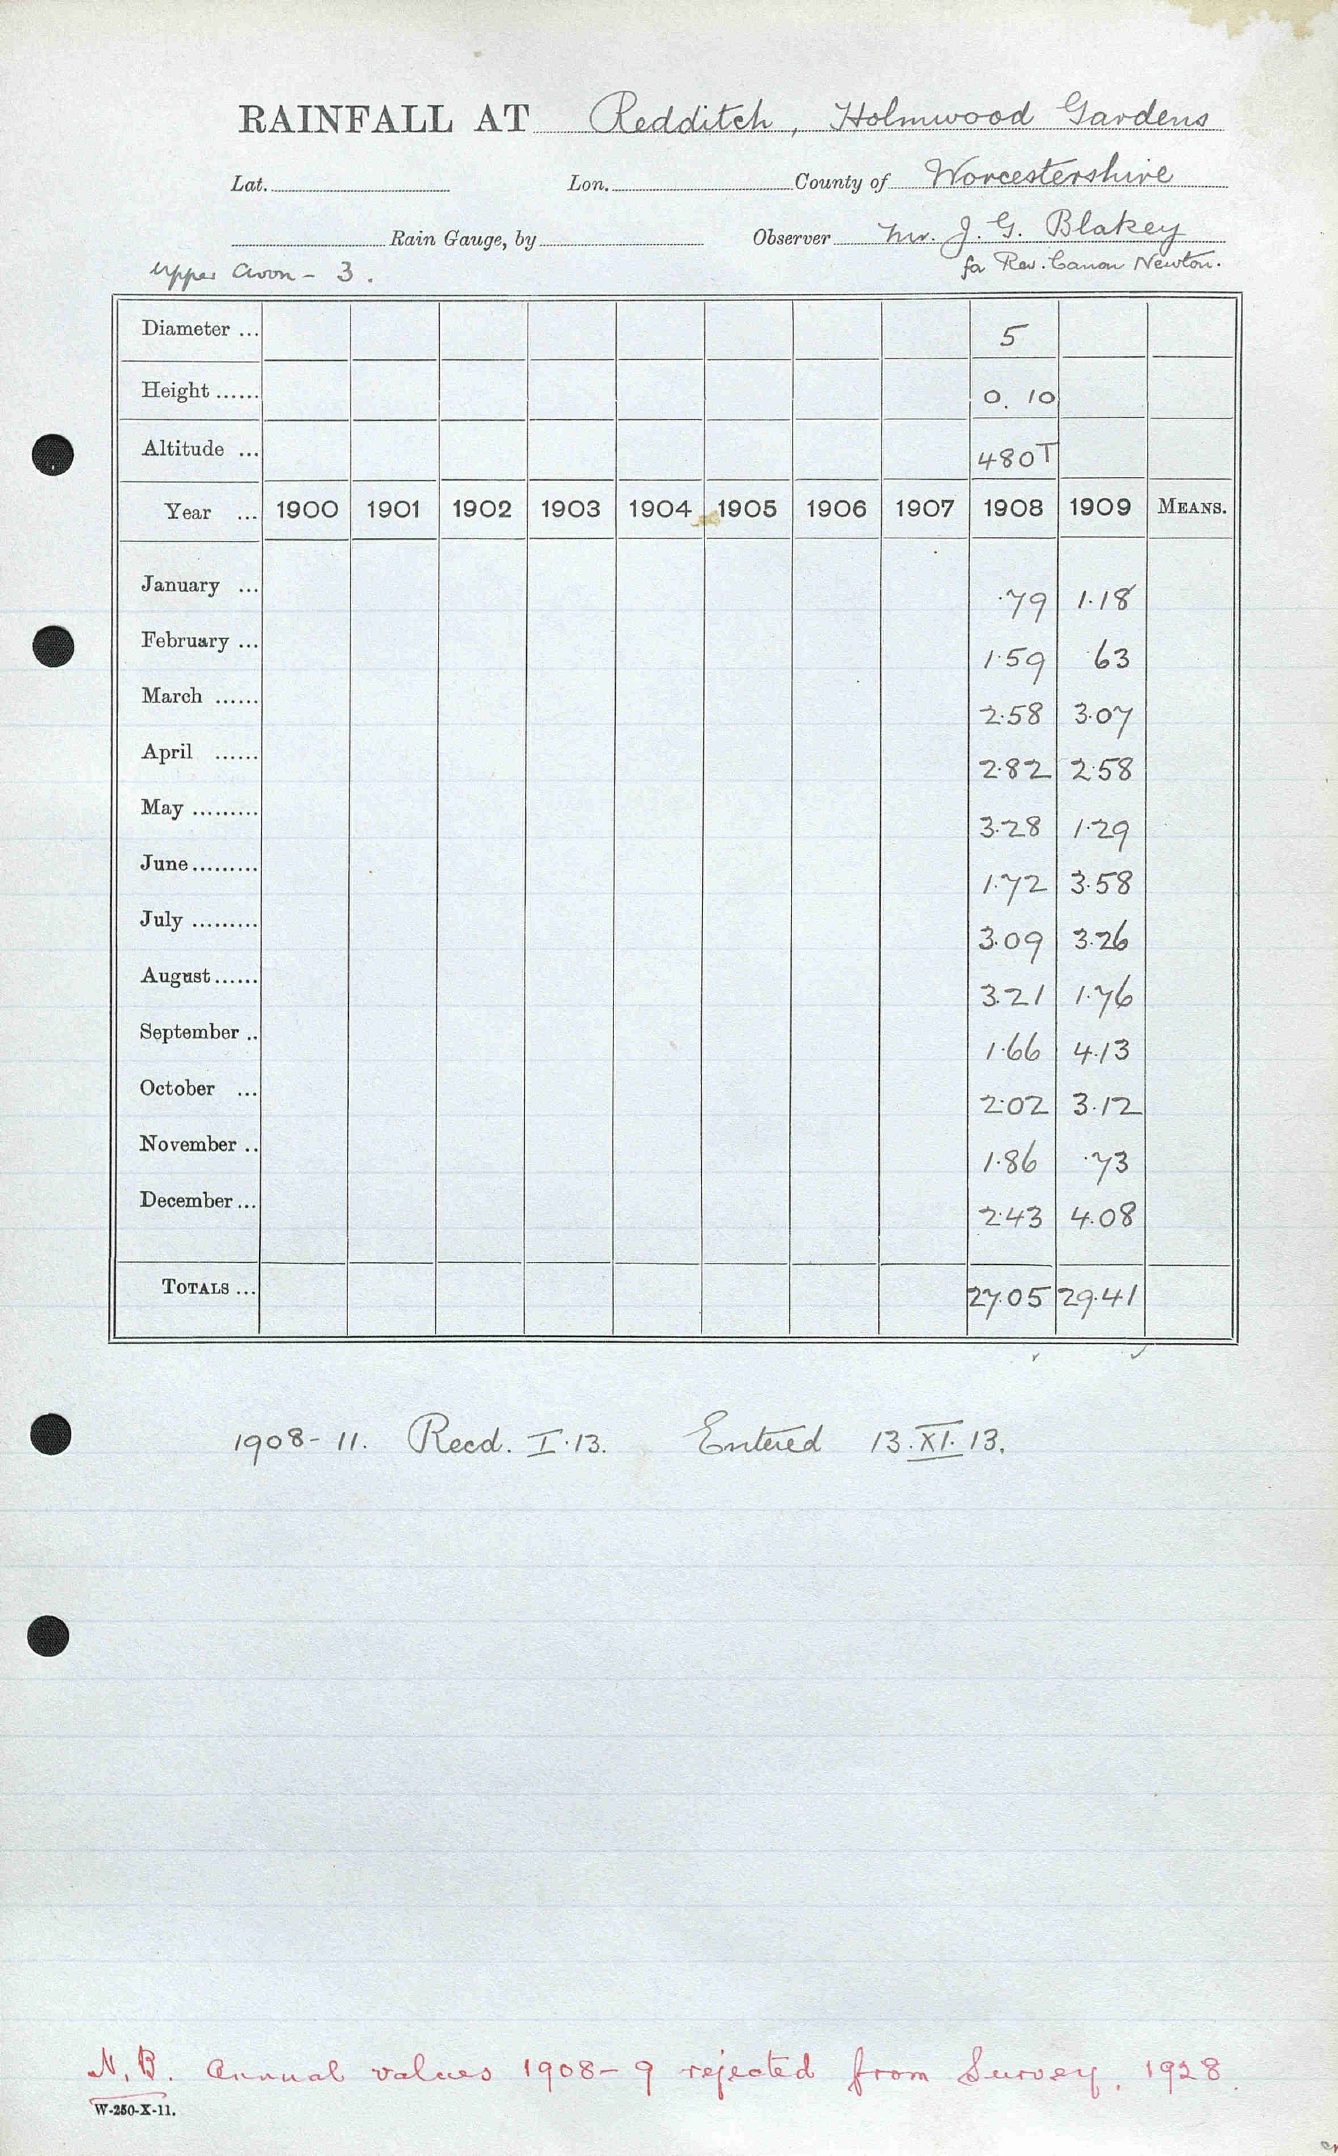 RAINFALL AT Redditch, Holmwood Gardens
Lat. Lon. County of Worcestershire
Rain Gauge, by Observer Mr. J. G. Blakey
Upper Avon - 3. for Rev. Canon Newton.
Diameter ... 5
Height ...... 0. 10
Altitude ... 480T
Year ... 1900 1901 1902 1903 1904 1905 1906 1907 1908 1909 MEANS.
January ... .79 1.18
February ... 1.59 .63
March ...... 2.58 3.07
April ...... 2.82 2.58
May ......... 3.28 1.29
June ......... 1.72 3.58
July ......... 3.09 3.26
August ...... 3.21 1.76
September .. 1.66 4.13
October ... 2.02 3.12
November .. 1.86 .73
December ... 2.43 4.08
TOTALS ... 27.05 29.41
1908-11. Recd. I.13. Entered 13.XI.13.
N.B. Annual values 1908-9 rejected from Survey. 1928.
W-250-X-11.